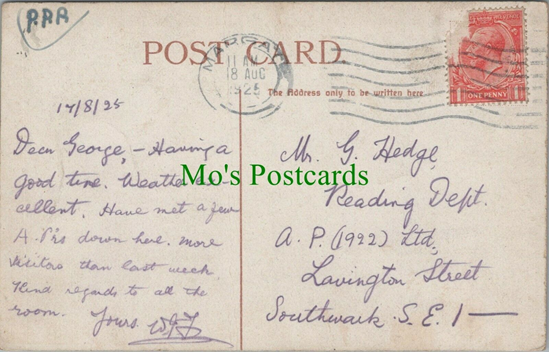 PPR
POST CARD.
MARGATE
11 AM
18 AUG
1925
ONE PENNY
The Address only to be written here
17/8/25
Dear George, - Having a
good time. Weather ex-
cellent. Have met a few
A.P's down here. More
visitors than last week.
Kind regards to all the
room. Yours
Mr. G. Hedge,
Reading Dept.
A.P. (1922) Ltd,
Lavington Street
Southwark S.E.1
Mo's Postcards